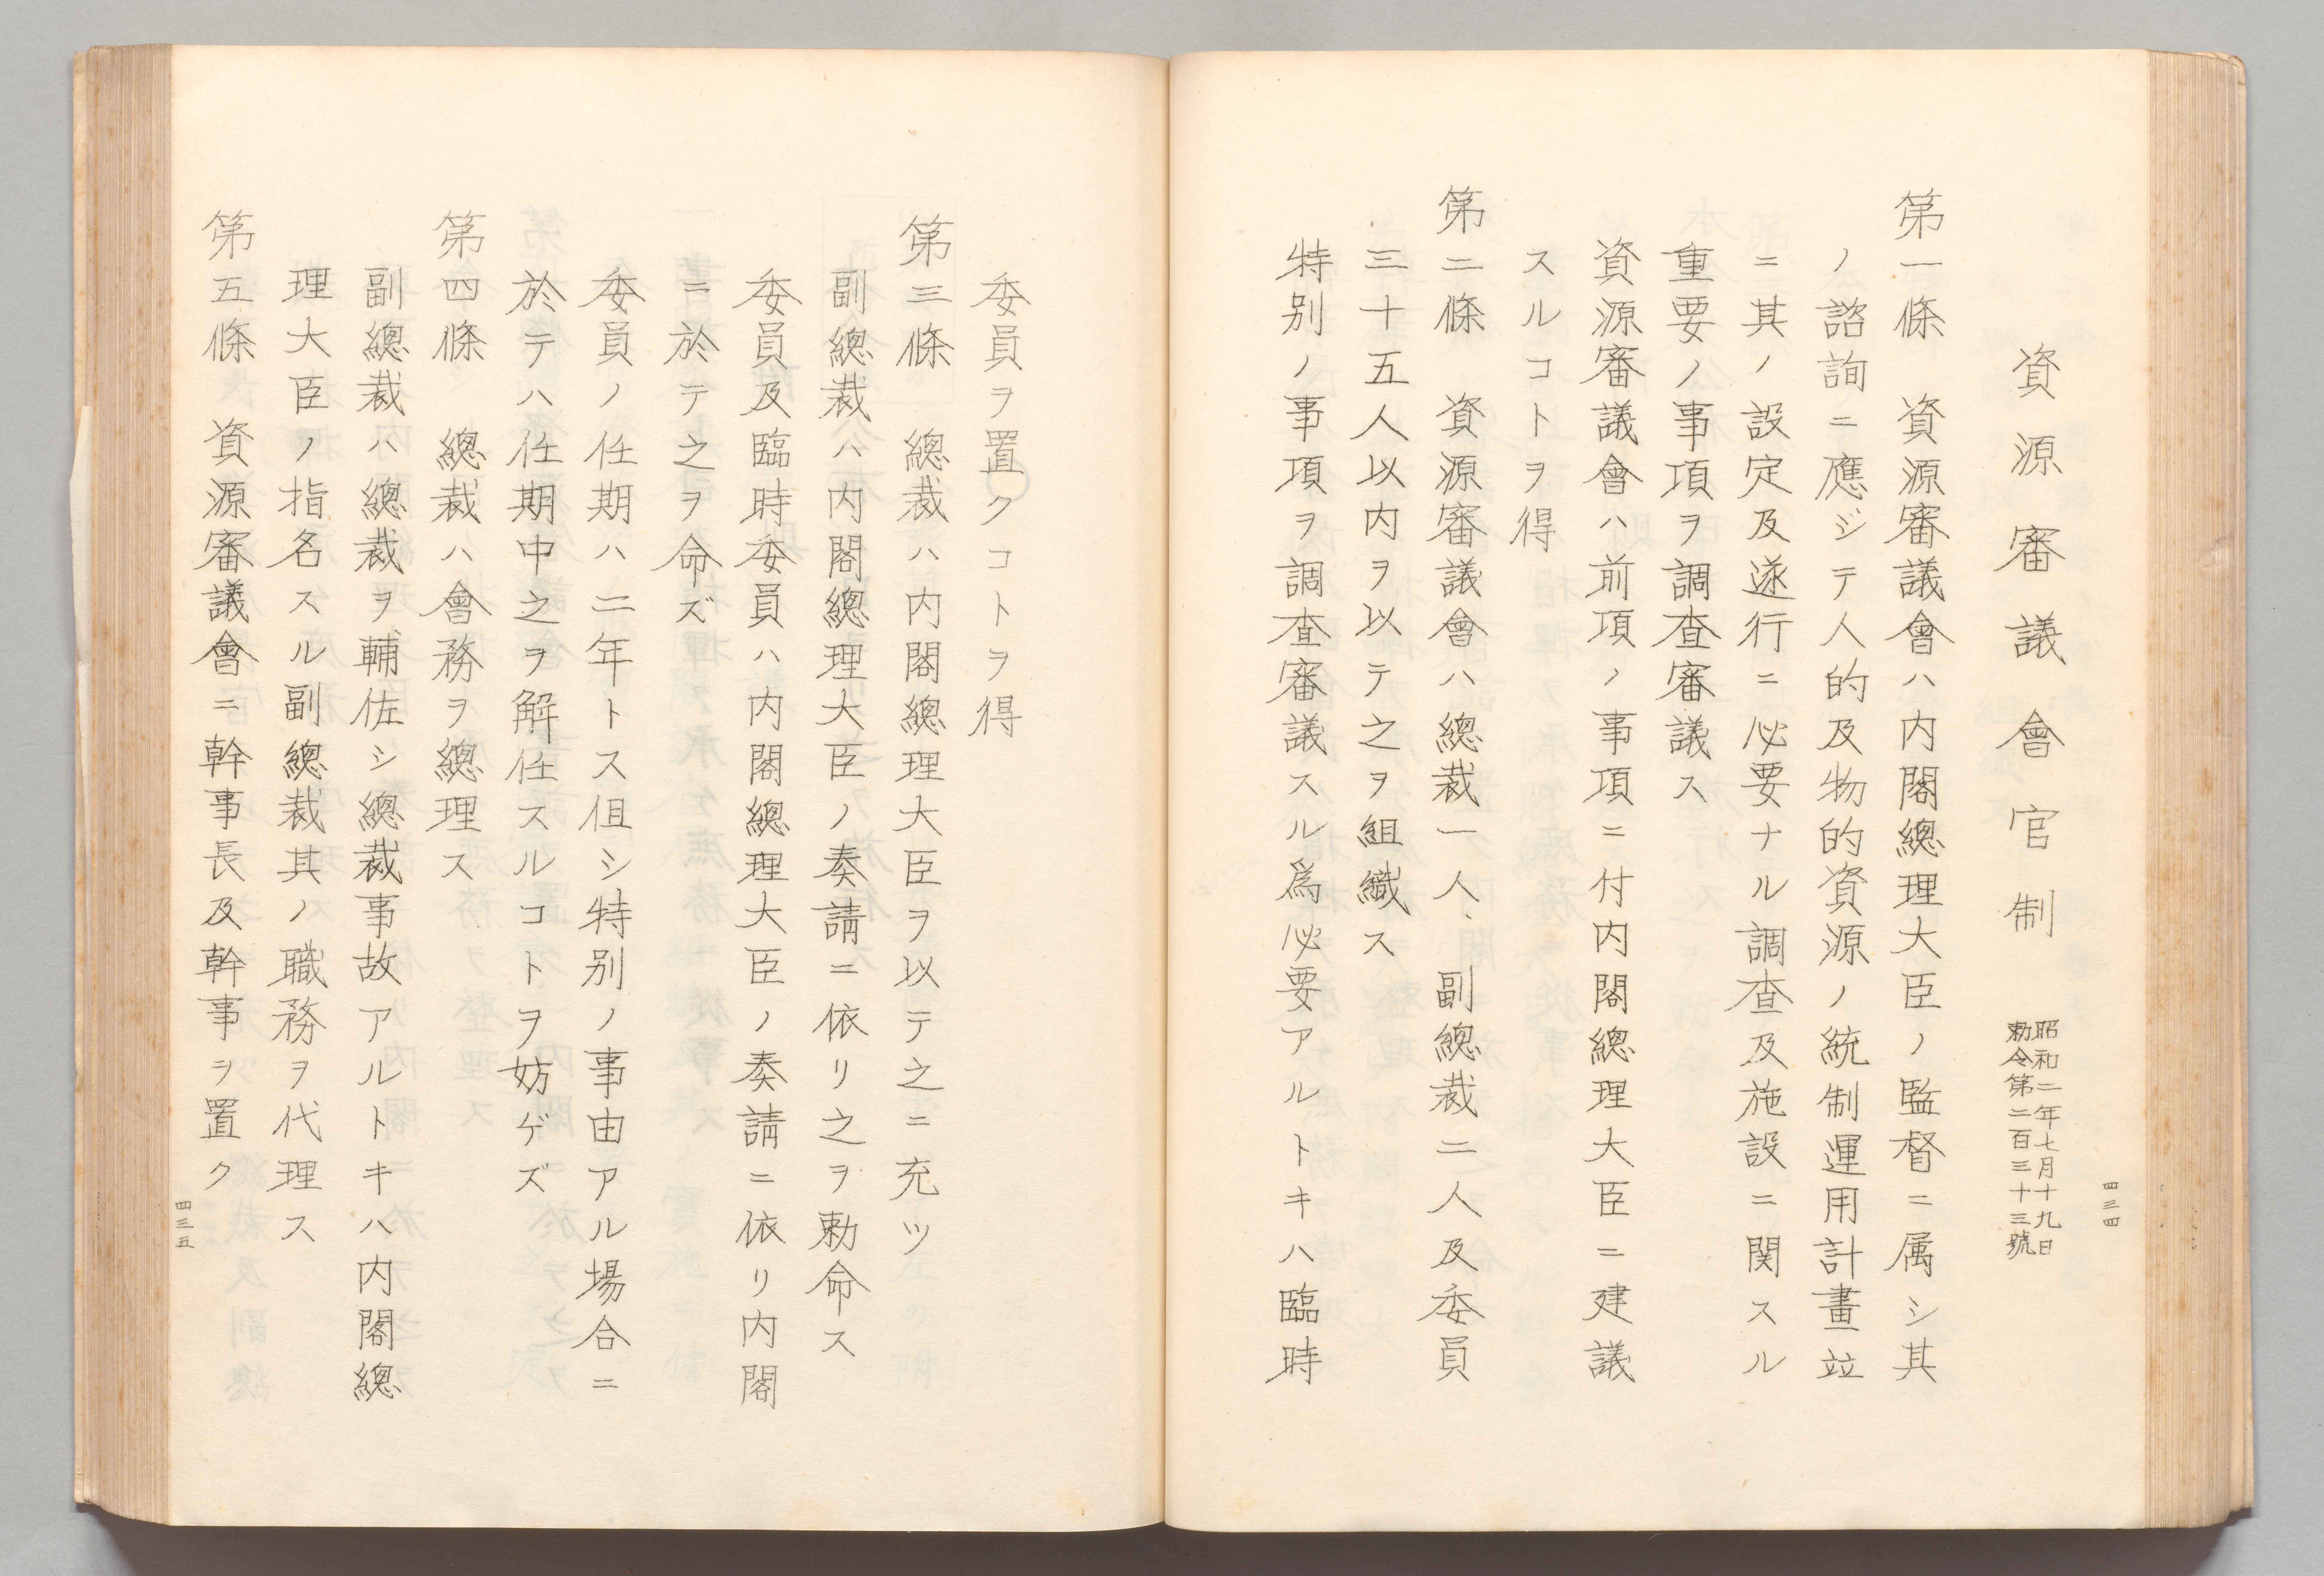 四三四
資源審議會官制
昭和二年七月十九日
勅令第二百三十三號
第一條　資源審議會ハ内閣總理大臣ノ監督ニ属シ其
ノ諮詢ニ應ジテ人的及物的資源ノ統制運用計畫竝
ニ其ノ設定及遂行ニ必要ナル調査及施設ニ関スル
重要ノ事項ヲ調査審議ス
資源審議會ハ前項ノ事項ニ付内閣總理大臣ニ建議
スルコトヲ得
第二條　資源審議會ハ總裁一人、副總裁二人及委員
三十五人以内ヲ以テ之ヲ組織ス
特別ノ事項ヲ調査審議スル爲必要アルトキハ臨時
委員ヲ置クコトヲ得
第三條　總裁ハ内閣總理大臣ヲ以テ之ニ充ツ
副總裁ハ内閣總理大臣ノ奏請ニ依リ之ヲ勅命ス
委員及臨時委員ハ内閣總理大臣ノ奏請ニ依リ内閣
ニ於テ之ヲ命ズ
委員ノ任期ハ二年トス但シ特別ノ事由アル場合ニ
於テハ任期中之ヲ解任スルコトヲ妨ゲズ
第四條　總裁ハ會務ヲ總理ス
副總裁ハ總裁ヲ輔佐シ總裁事故アルトキハ内閣總
理大臣ノ指名スル副總裁其ノ職務ヲ代理ス
第五條　資源審議會ニ幹事長及幹事ヲ置ク
四三五